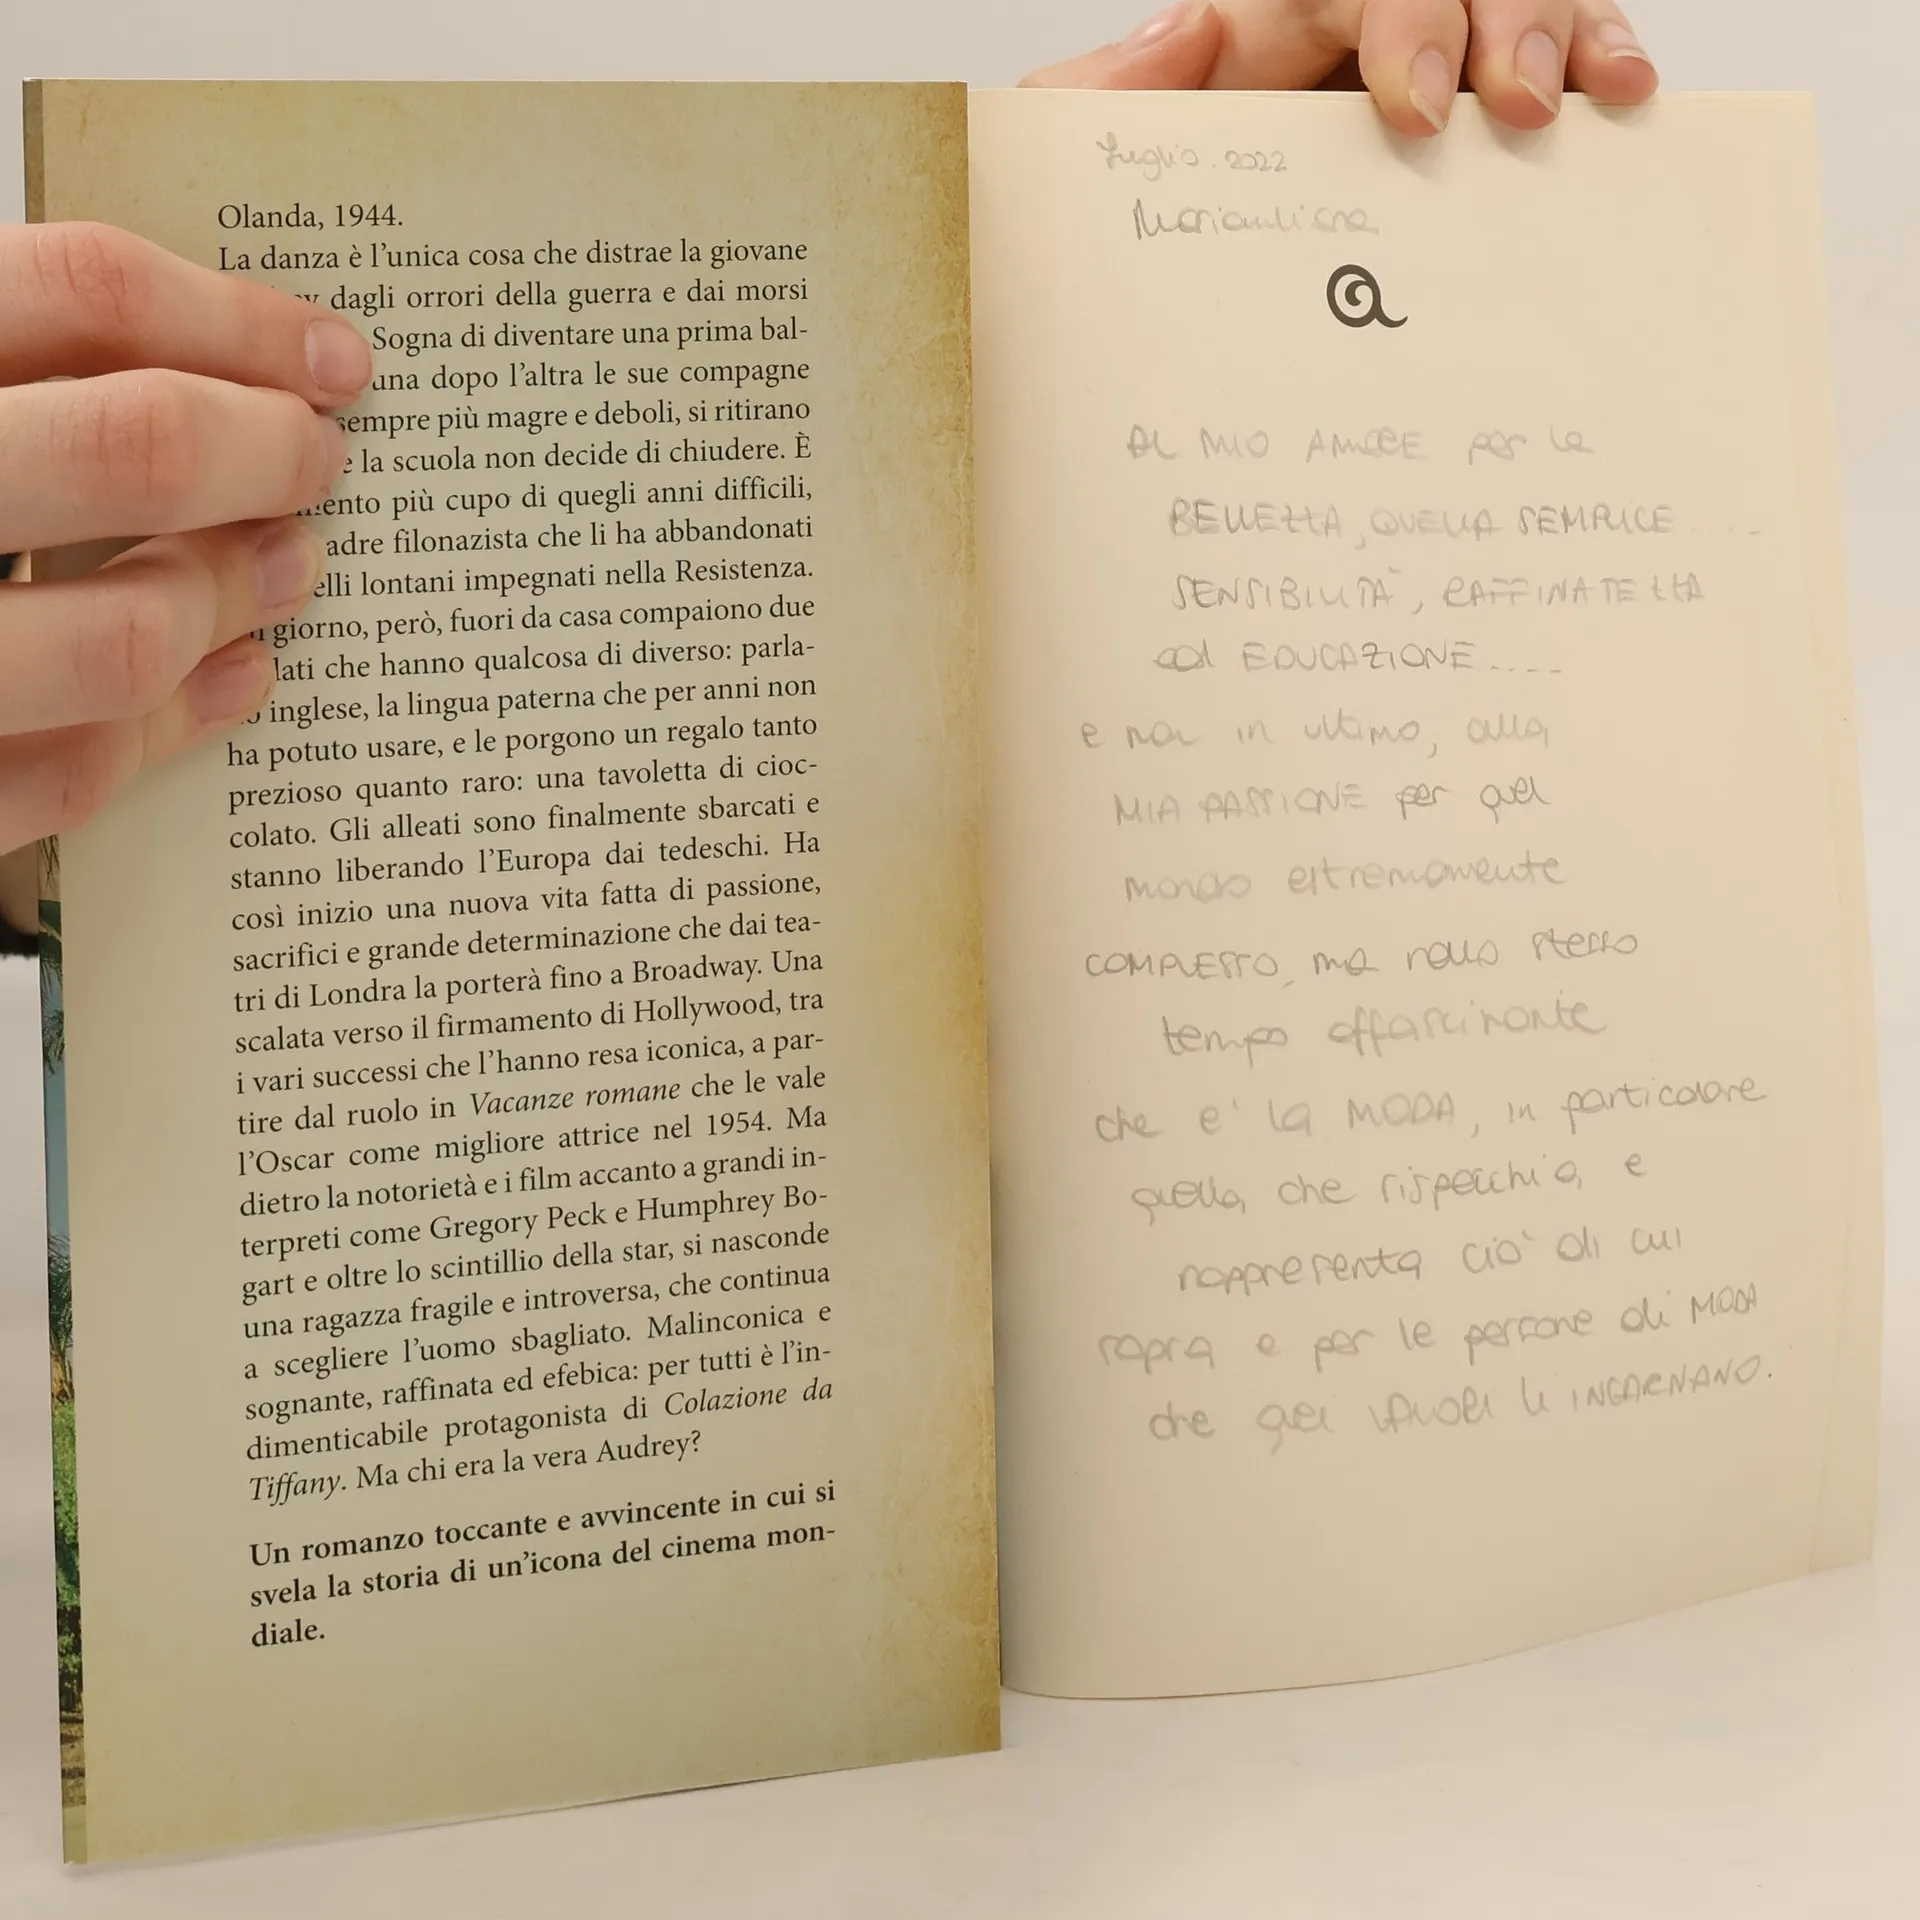 Olanda, 1944.
La danza è l'unica cosa che distrae la giovane
dagli orrori della guerra e dai morsi
Sogna di diventare una prima bal-
una dopo l'altra le sue compagne
sempre più magre e deboli, si ritirano
e la scuola non decide di chiudere. È
più cupo di quegli anni difficili,
filonazista che li ha abbandonati
lontani impegnati nella Resistenza.
giorno, però, fuori da casa compaiono due
che hanno qualcosa di diverso: parla-
inglese, la lingua paterna che per anni non
ha potuto usare, e le porgono un regalo tanto
prezioso quanto raro: una tavoletta di cioc-
colato. Gli alleati sono finalmente sbarcati e
stanno liberando l'Europa dai tedeschi. Ha
così inizio una nuova vita fatta di passione,
sacrifici e grande determinazione che dai tea-
tri di Londra la porterà fino a Broadway. Una
scalata verso il firmamento di Hollywood, tra
i vari successi che l'hanno resa iconica, a par-
tire dal ruolo in Vacanze romane che le vale
l'Oscar come migliore attrice nel 1954. Ma
dietro la notorietà e i film accanto a grandi in-
terpreti come Gregory Peck e Humphrey Bo-
gart e oltre lo scintillio della star, si nasconde
una ragazza fragile e introversa, che continua
a scegliere l'uomo sbagliato. Malinconica e
sognante, raffinata ed efebica: per tutti è l'in-
dimenticabile protagonista di Colazione da
Tiffany. Ma chi era la vera Audrey?
Un romanzo toccante e avvincente in cui si
svela la storia di un'icona del cinema mon-
diale.
Luglio. 2022
AL MIO per la
BELLEZZA, QUELLA SEMPLICE ....
SENSIBILITÀ, RAFFINATEZZA
ed EDUCAZIONE ....
e non in ultimo, alla
MIA PASSIONE per quel
mondo estremamente
COMPLESSO, ma nello stesso
tempo affascinante
che e' la MODA, in particolare
quella che rispecchia e
rappresenta ciò di cui
sopra e per le persone di MODA
che quei VALORI li INCARNANO.